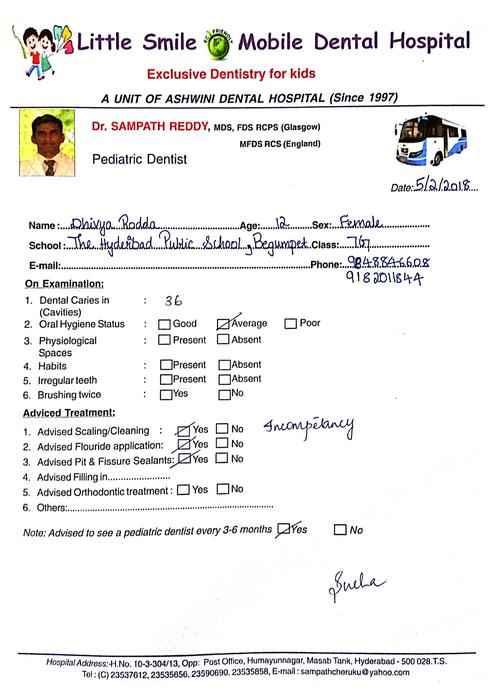 Little Smile Mobile Dental Hospital
Exclusive Dentistry for kids
A UNIT OF ASHWINI DENTAL HOSPITAL (Since 1997)
Dr. SAMPATH REDDY, MDS, FDS RCPS (Glasgow)
MFDS RCS (England)
Pediatric Dentist
Date: 5/2/2018
Name: Dhivya Rodda Age: 12 Sex: Female
School: The Hyderbad Public School, Begumpet Class: 7G7
E-mail: Phone: 9848846608
9182011844
On Examination:
1. Dental Caries in (Cavities) : 36
2. Oral Hygiene Status : Good Average Poor
3. Physiological Spaces : Present Absent
4. Habits : Present Absent
5. Irregular teeth : Present Absent
6. Brushing twice : Yes No
Adviced Treatment:
1. Advised Scaling/Cleaning : Yes No Incompetancy
2. Advised Flouride application: Yes No
3. Adviced Pit & Fissure Sealants: Yes No
4. Advised Filling in
5. Advised Orthodontic treatment : Yes No
6. Others:
Note: Advised to see a pediatric dentist every 3-6 months Yes No
Sneha
Hospital Address:-H.No. 10-3-304/13, Opp: Post Office, Humayunnagar, Masab Tank, Hyderabad - 500 028.T.S.
Tel : (C) 23537612, 23535656, 23590690, 23535858, E-mail : sampathcheruku@yahoo.com